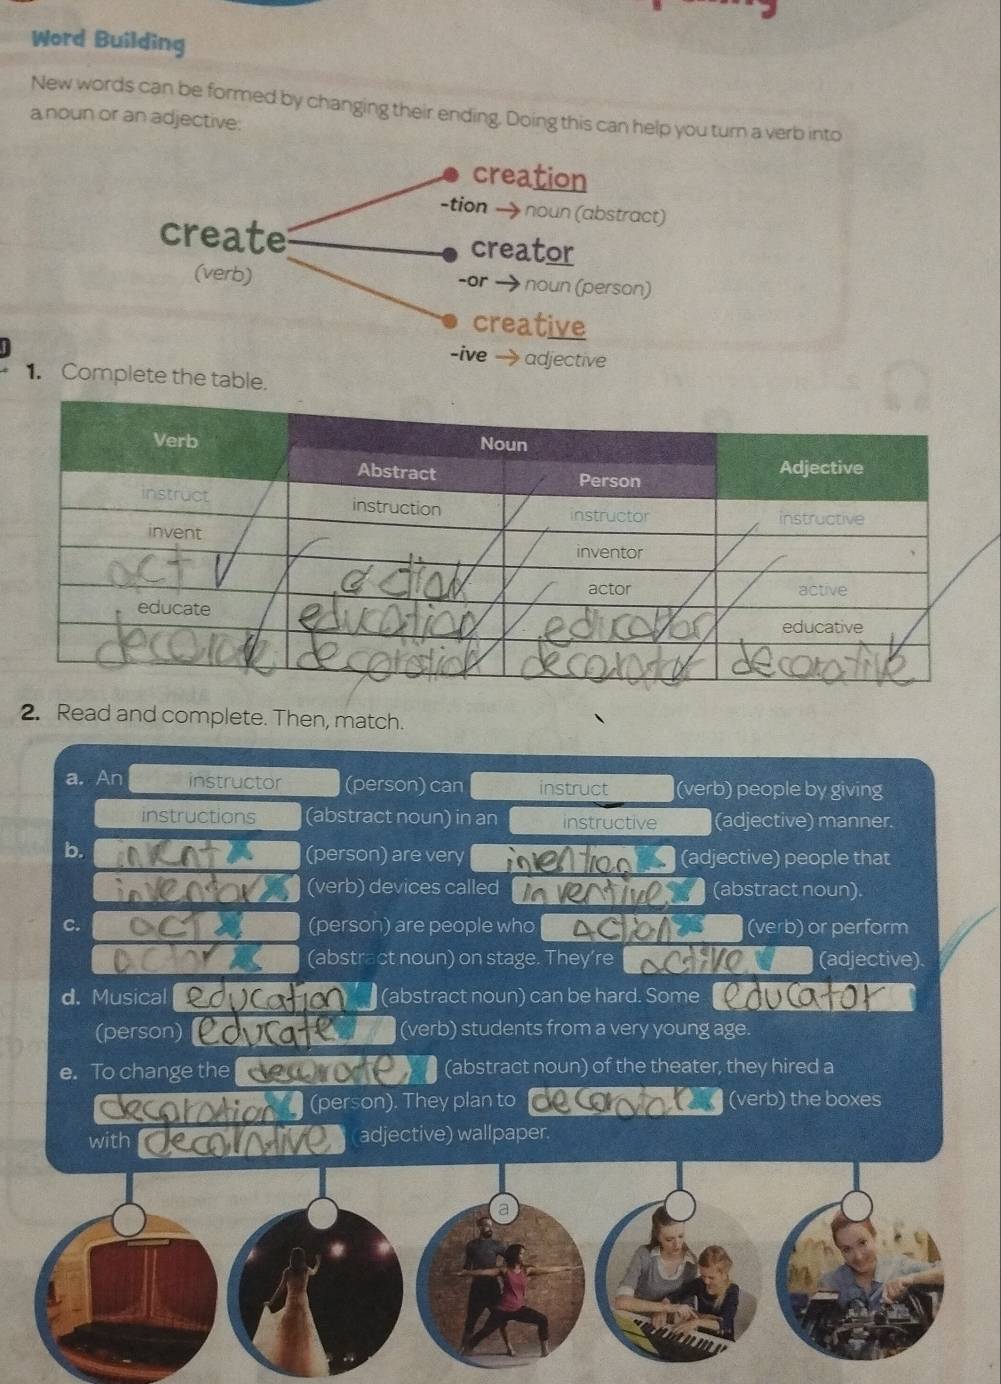 Word Building
New words can be formed by changing their ending. Doing this can help you turn a verb into
a noun or an adjective:
creation
-tion → noun (abstract)
create
creator
(verb)
-or → noun (person)
creative
-ive → adjective
1. Complete the table.
Verb Noun Adjective
Abstract Person
instruct instruction instructor instructive
invent inventor
act action actor active
educate education educator educative
decorate decoration decorator decorative
2. Read and complete. Then, match.
a. An instructor (person) can instruct (verb) people by giving
instructions (abstract noun) in an instructive (adjective) manner.
b. invent (person) are very invention (adjective) people that
inventor (verb) devices called inventive (abstract noun).
c. act (person) are people who action (verb) or perform
actor (abstract noun) on stage. They're active (adjective).
d. Musical education (abstract noun) can be hard. Some educator
(person) educate (verb) students from a very young age.
e. To change the decorate (abstract noun) of the theater, they hired a
decoration (person). They plan to decorator (verb) the boxes
with decorative (adjective) wallpaper.
a